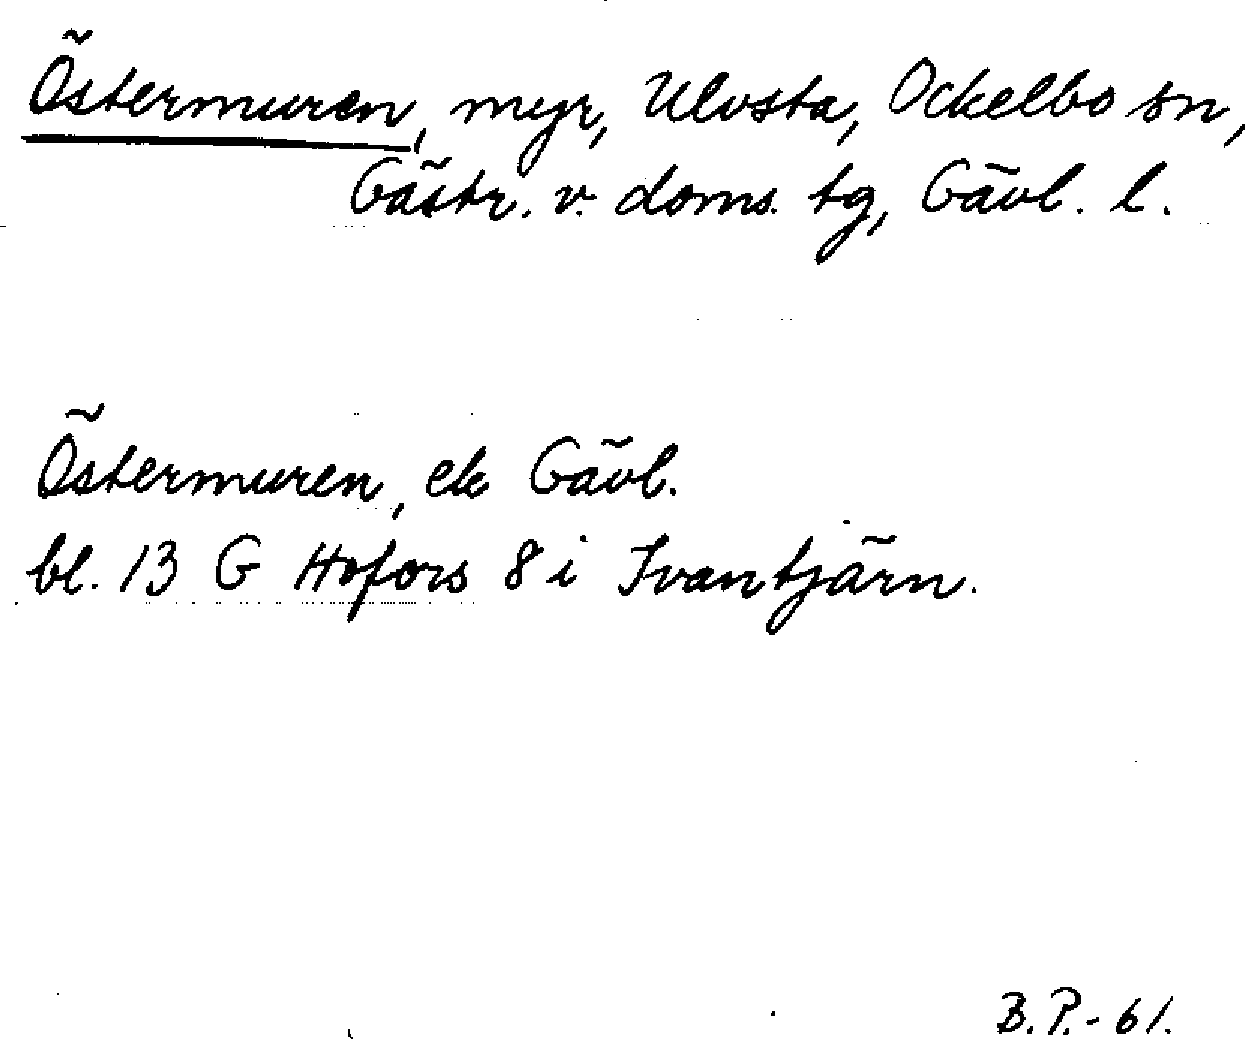 Östermuren, myr, Ulvsta, Ockelbo sn,
Gästr. v. doms. tg, Gävl. l.
Östermuren, ek Gävl.
bl. 13 G Hofors 8 i Ivantjärn.
B.P.-61.